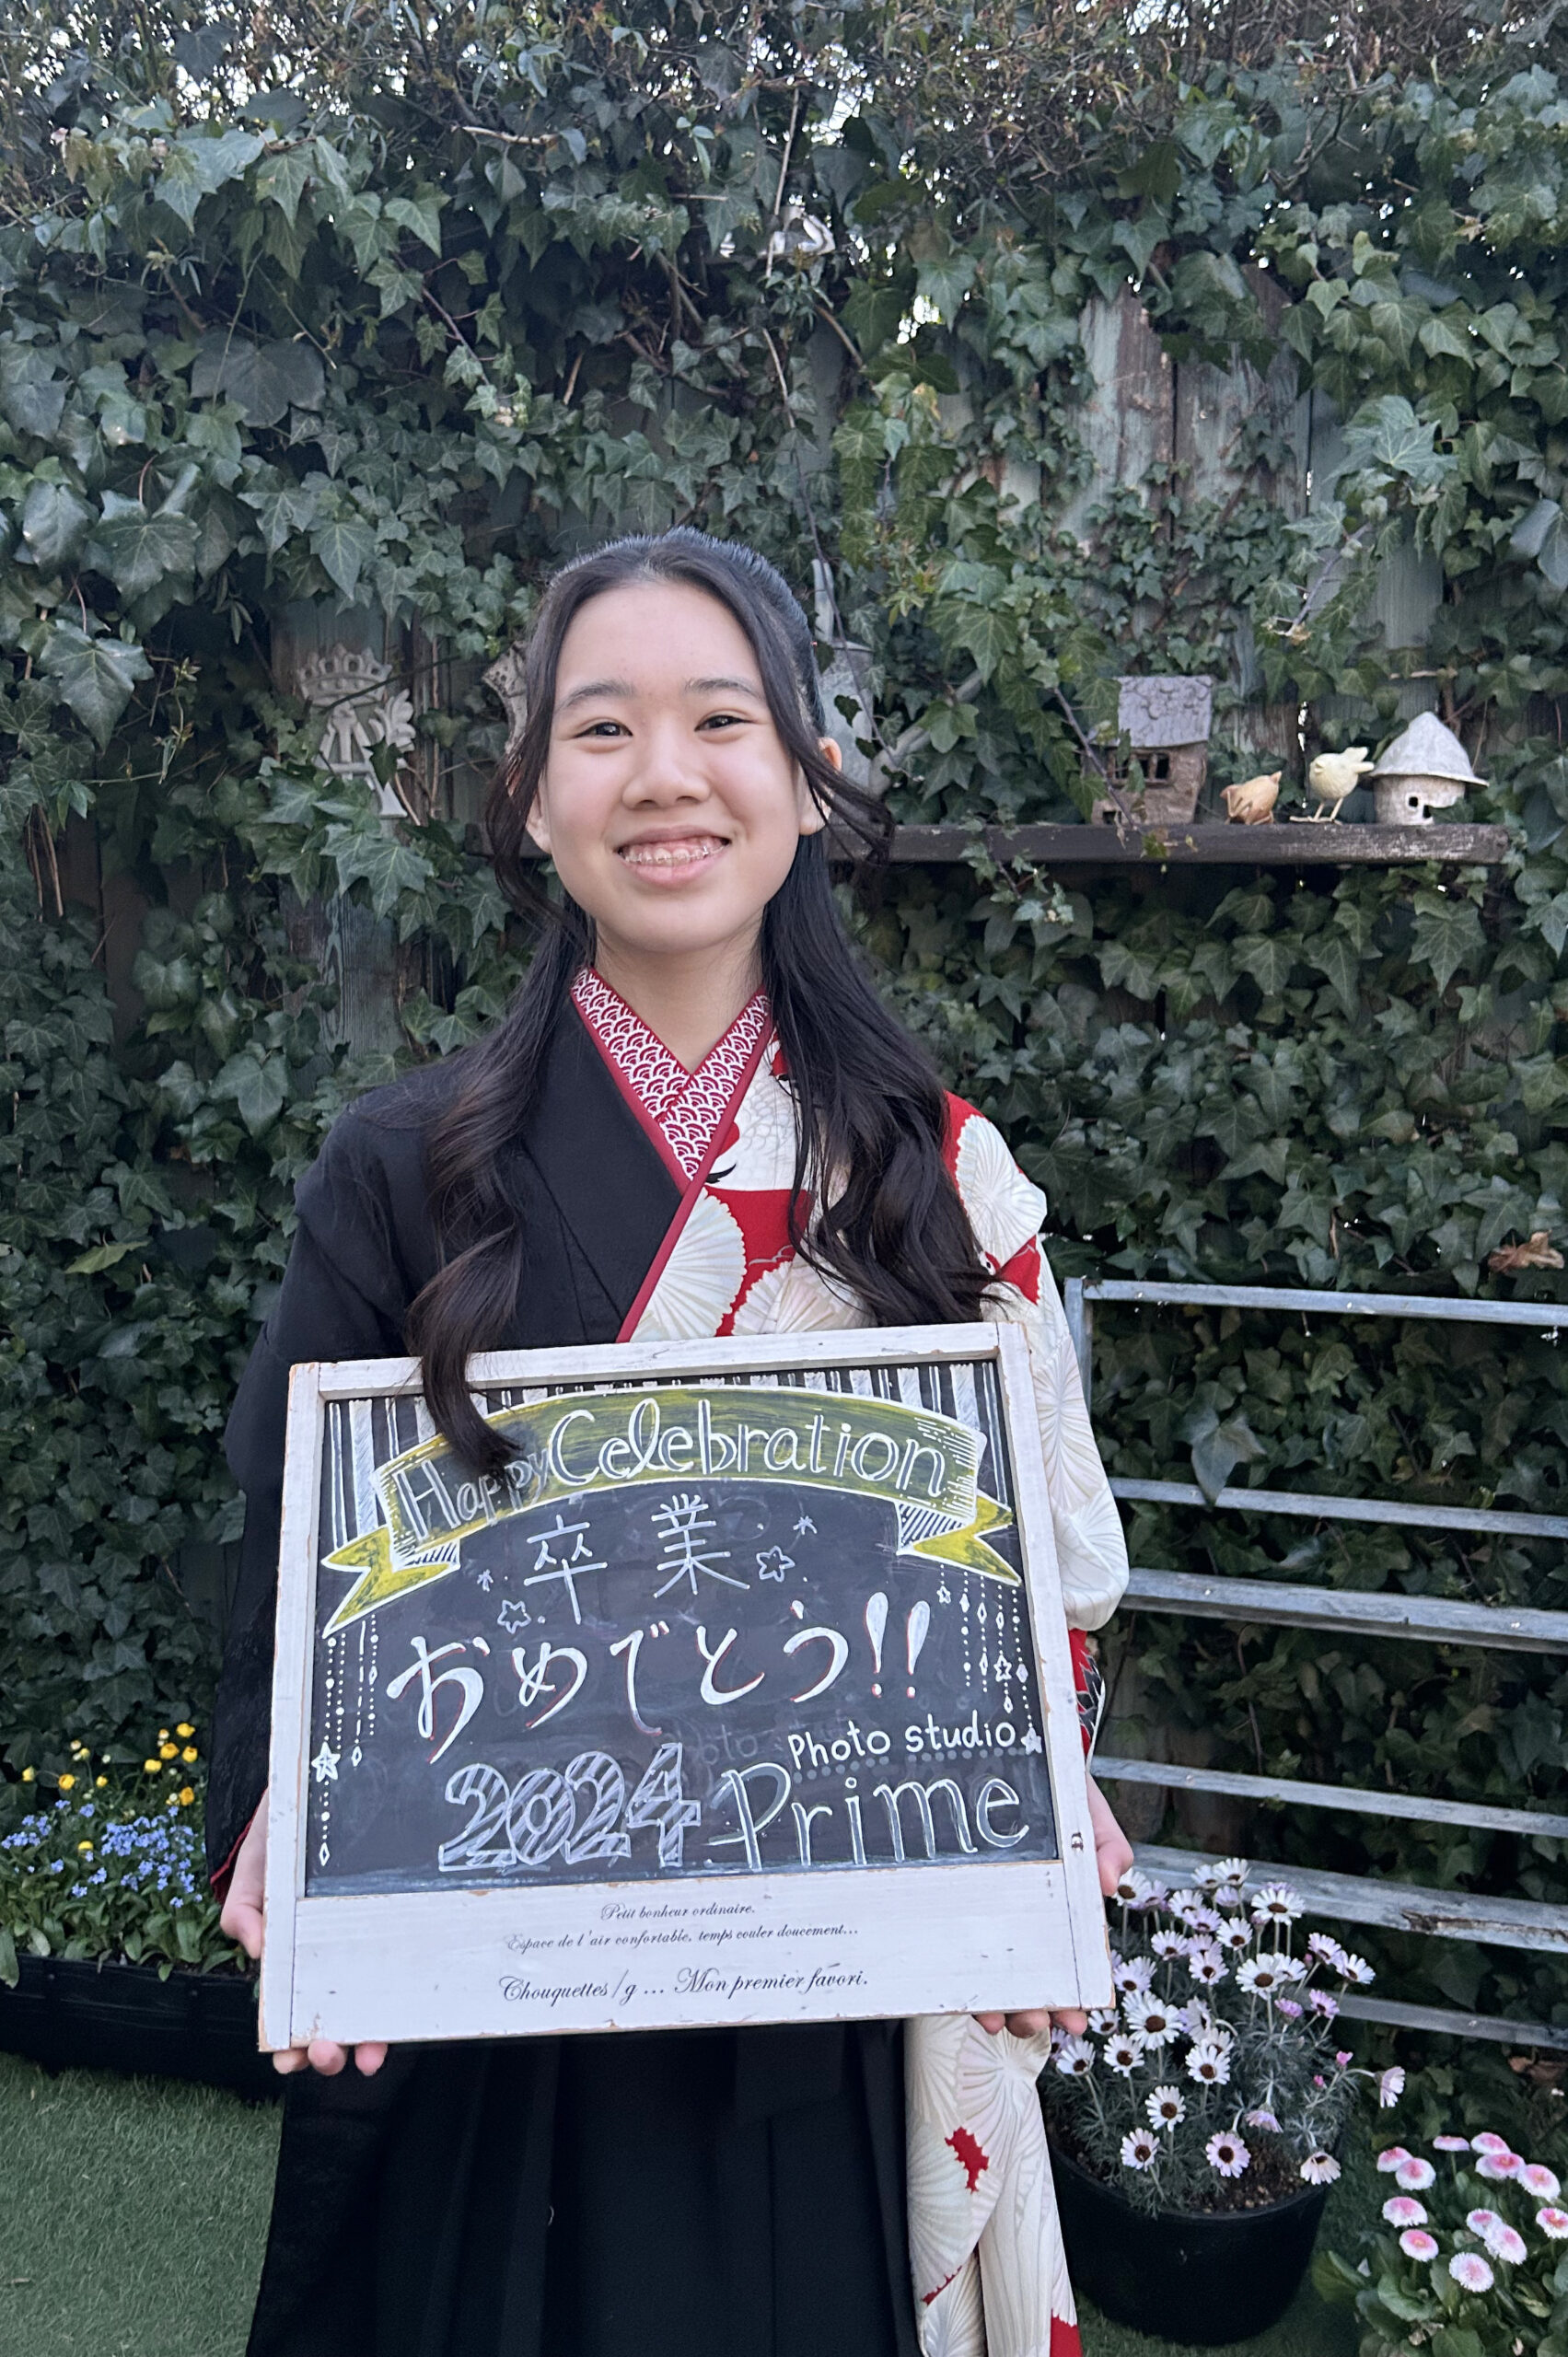 Happy Celebration
卒業
おめでとう!!
2024 Photo studio
Prime
Petit bonheur ordinaire.
Espace de l'air confortable, temps couler doucement...
Chouquettes/g ... Mon premier favori.